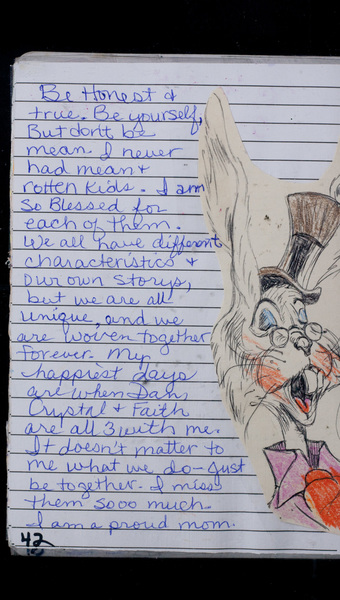 Be Honest &
true. Be yourself,
But don't be
mean. I never
had mean &
rotten kids. I am
so Blessed for
each of them.
We all have different
characteristics &
our own storys,
but we are all
unique, and we
are woven together
forever. My
happiest days
are when Dan,
Crystal & Faith
are all 3 with me.
It doesn't matter to
me what we do-just
be together. I miss
them sooo much.
I am a proud mom.
42